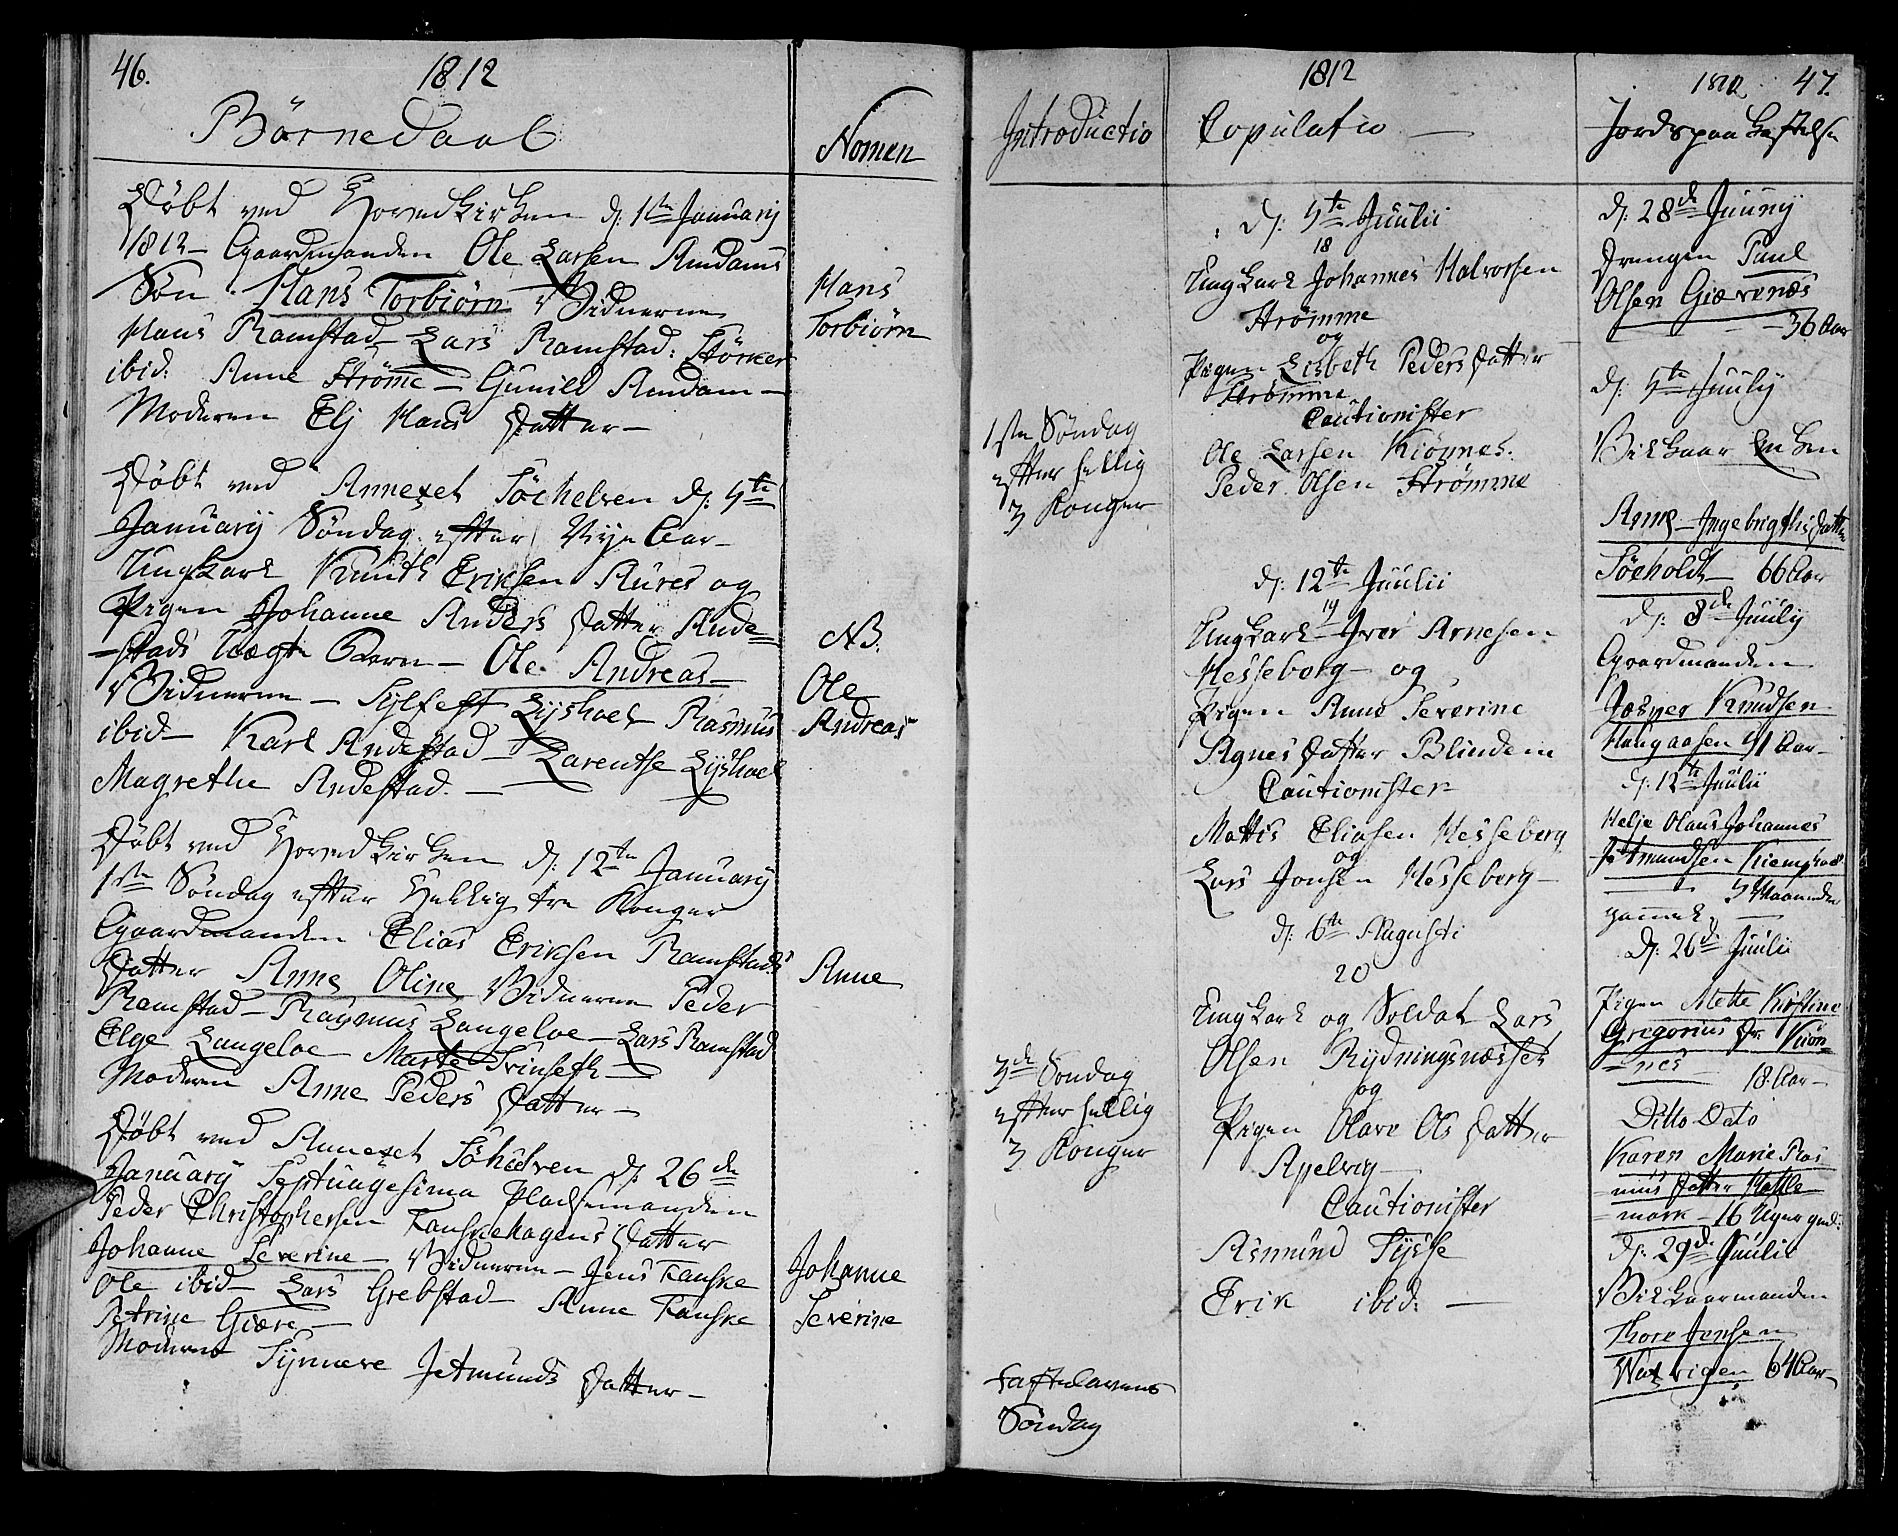 46. 1812
Börnedaab
Nomen
Döbt ved Hovedkirken d: 1ste January
1812 – Gaardmanden Ole Larsen Amdams
Sön Hans Torbiørn Vidnerne
Hans Ramstad – Lars Ramstad: Störker
ibid. Anne Strömme – Gunild Amdam –
Moderen Elj Hans Datter –
Hans
Torbiørn
Döbt ved Annexet Söchelven d: 5te
January Söndag efter Nye Aar –
Ungkarl Knuth Eriksen Aures og
Pigen Johanne Anders Datter Ande=
stads Uægte Barn – Ole Andreas –
Vidnerne – Sylfest Lyshoel Rasmus
ibid – Karl Andestad – Larentse Lyshoel
Magrethe Andestad. –
NB.
Ole
Andreas
Döbt ved Hovedkirken d: 12te January
1ste Söndag efter Hellig tre Konger
Gaardmanden Elias Eriksen Ramstads
Datter Anne Oline Vidnerne Peder
Ramstad – Rasmus Langeloe – Lars Ramstad
Elge Langeloe – Marte Svinseth –
Moderen Anne Peders Datter –
Anne
Döbt ved Annexet Söhelven d: 26de
January Septuagesima Pladsemanden
Peder Christophersen Fauskehagens Datter
Johanne Severine – Vidnerne – Jens Fauske
Ole ibid – Lars Grebstad – Anne Fauske
Petrine Giære –
Moderen Synnøve Jetmunds Datter –
Johanne
Severine
Introductio
1ste Söndag
efter hellig
3 Konger
3de Söndag
efter hellig
3 Konger
Fastelavens
Söndag
1812
Copulatio –
d: 5te Juulii
18
Ungkarl Johannes Halvorsen
Strömme
og
Pigen Lisbeth Peders Datter
Strömme
Cautionister
Ole Larsen Kiøpnes.
Peder Olsen Strömme
d: 12te Juulii
19
Ungkarl Iver Arnesen
Hesseborg – og
Pigen Anne Severine
Agnes Datter Blindem
Cautionister
Mattis Eliasen Hesseberg
og
Lars Jonsen Hesseberg –
d: 6te Augusti
20
Ungkarl og Soldat Lars
Olsen Rydningsnæsset
og
Pigen Olave Ols Datter
Apelvig –
Cautionister
Asmund Sysse
Erik ibid. –
1812 47.
Jordspaa kastelse
d: 28de Juuny
Drengen Paul
Olsen Giævenæs
– 36 Aar
d: 5te Juuly
Vilkaar Enken
Anne Ingebrigths Datter
Söeholdt – 66 Aar
d: 8de Juuly
Gaardmanden
Jesper Knudsen
Haugaasen 51 Aar –
d: 12te Juulii
Helje Olaus Johannes
Jetmundsen
3 Maaneder
gammel –
d: 26de Juulii
Pigen Mette Kirstine
Gregorius Dr. Kiöp=
=nes – 18. Aar –
Ditto Dato
Karen Marie Ras
=mus Datter Hatle
=mark – 16 Uger gml:
d: 29de Juulii
Vilkaarmanden
Thore Jensen
64 Aar –